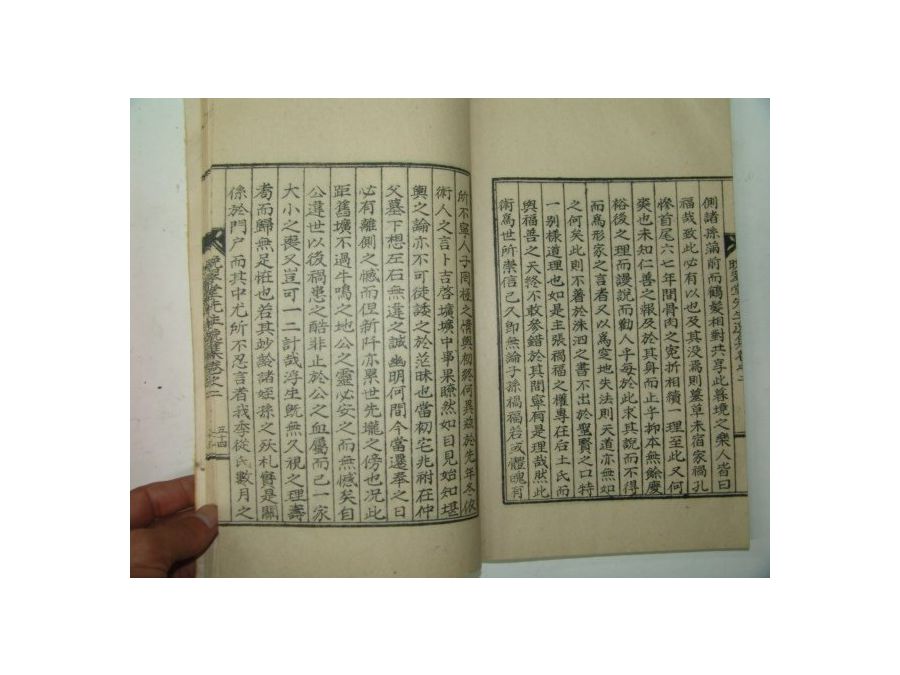 側諸孫滿前而鶴髮相對共享此暮境之樂人皆曰
福哉致此必有以也及其沒焉則墓草未宿家禍孔
慘首尾六七年間骨肉之寃折相續一理至此又何
爽也未知仁善之報及於其身而止乎抑本無餘慶
裕後之理而謾說而勸人乎每於此求其說而不得
而爲形家之言者又以爲窆地失法則天道亦無如
之何矣此則不著於洙泗之書不出於聖賢之口特
一別樣道理也如是主張禍福之權專在后土氏而
與福善之天終不敢參錯於其間寧有是理哉然此
術爲世所崇信已久即無論子孫禍福若或體魄有
所不寧人子罔極之情與初終何異玆於先年冬依
術人之言卜吉啓壙壙中事果瞭然如目見始知堪
輿之論亦不可徒諉之於茫昧也當初宅兆祔在仲
父墓下想左右無違之誠幽明何間今當還奉之日
必有離側之憾而但新阡亦累世先壠之傍也况此
距舊壙不過牛鳴之地公之靈必安之而無憾矣自
公違世以後禍患之酷非止於公之血屬而已一家
大小之喪又豈可一二計哉浮生旣無久視之理壽
耈而歸無足恠也若其妙齡諸姪孫之殀札實是關
係於門户而其中尤所不忍言者我季從氏數月之
先生
五十四